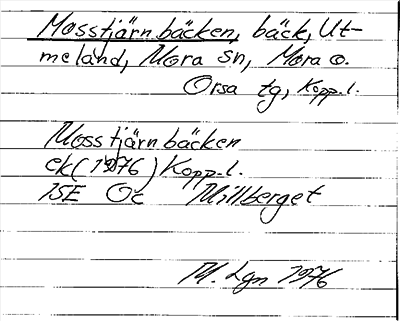 Mosstjärnbäcken, bäck, Ut-
meland, Mora sn, Mora o.
Orsa tg, Kopp.l.
Mosstjärnbäcken
ek(1976) Kopp.l.
15E Öc Millberget
M. Lgn 1976